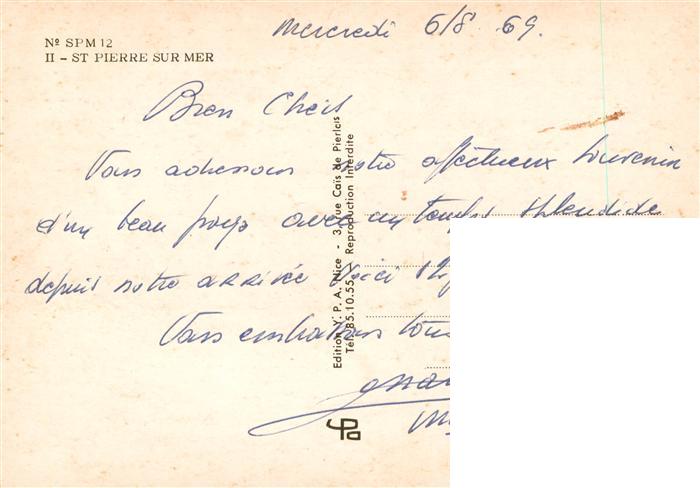 Mercredi 6/8.69.
Nº SPM 12
II - ST PIERRE SUR MER
Bien Chers
Vous adressons notre affectueux souvenir
d'un beau pays avec un temps splendide
depuis notre arrivée ici
Vous embrassons tous
Edition Y. P. A. Nice - 3, rue Caïs de Pierlcis
Tél. 85.10.55 - Reproduction Interdite